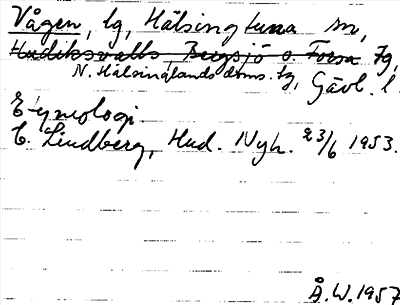 Vågen, lg, Hälsingtuna sn,
Hudiksvalls, Bergsjö o. Forsa tg,
N. Hälsinglands doms. tg, Gävl. l.
Etymologi.
C. Lindberg, Hud. Nyh. 23/6 1953.
Å.W.1957